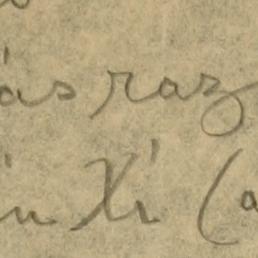 ás raz
in Xi (a